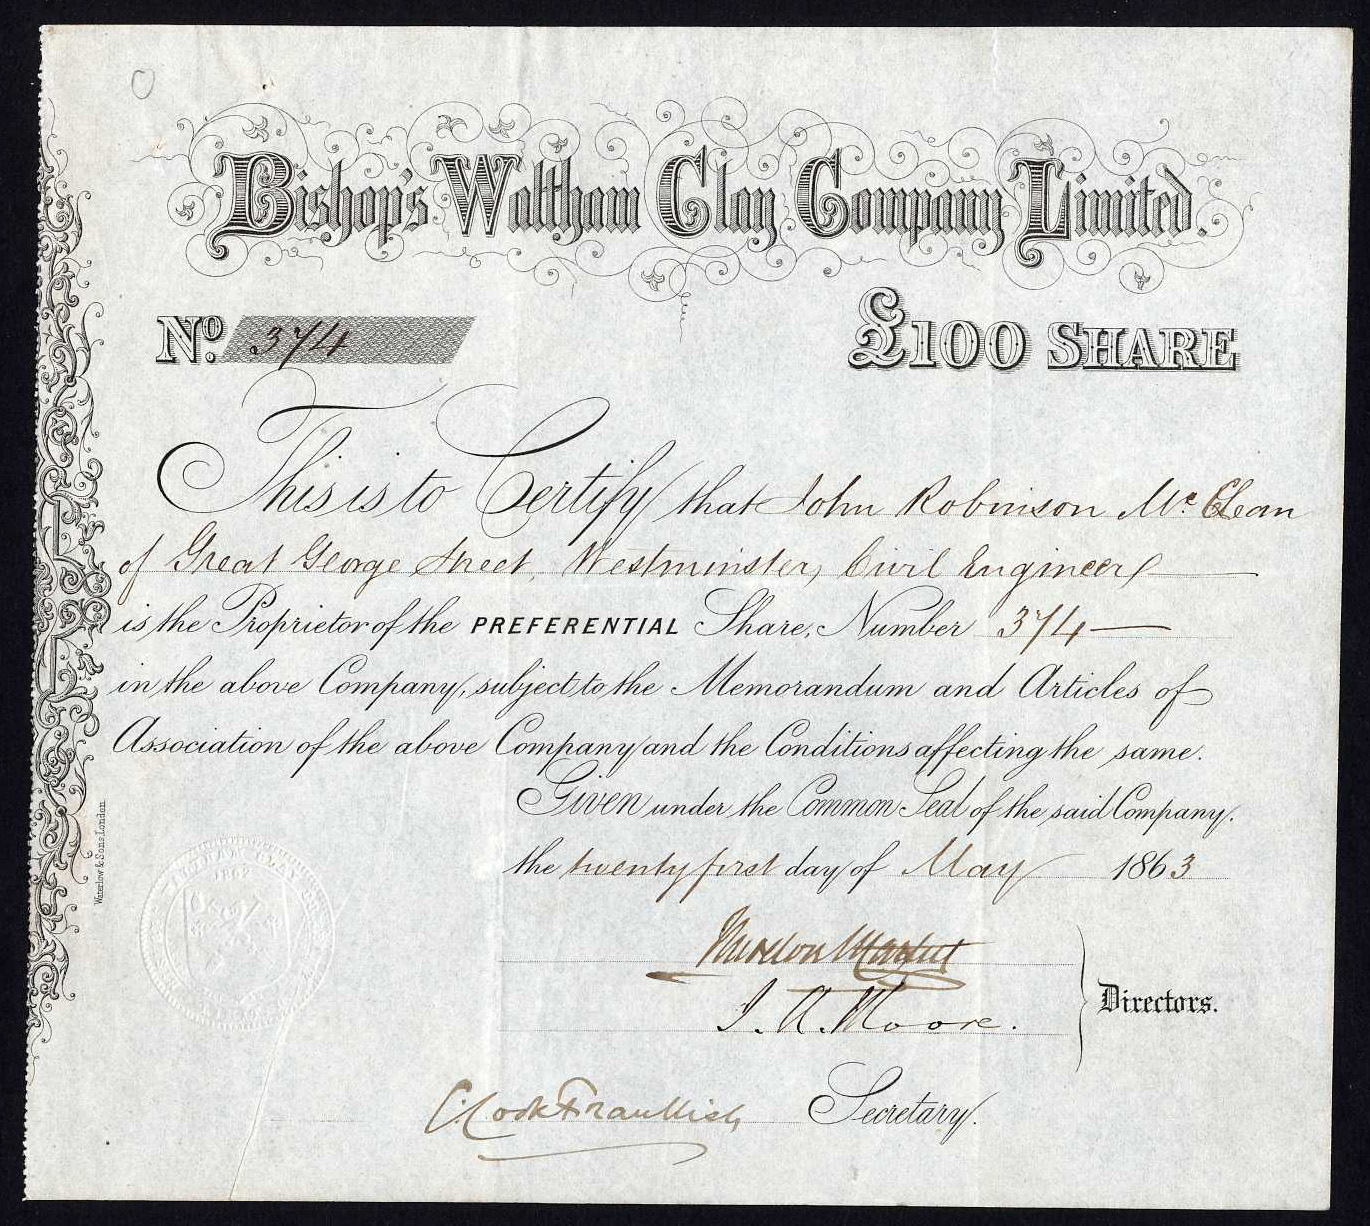 Bishop's Waltham Clay Company Limited.
No. 374
£100 SHARE
This is to Certify that John Robinson Mc Clean
of Great George Street, Westminster, Civil Engineer
is the Proprietor of the PREFERENTIAL Share, Number 374
in the above Company, subject to the Memorandum and Articles of
Association of the above Company and the Conditions affecting the same.
Given under the Common Seal of the said Company.
the twenty first day of May 1863
I. A. Moore.
Directors.
Secretary.
Waterlow & Sons, London
1862